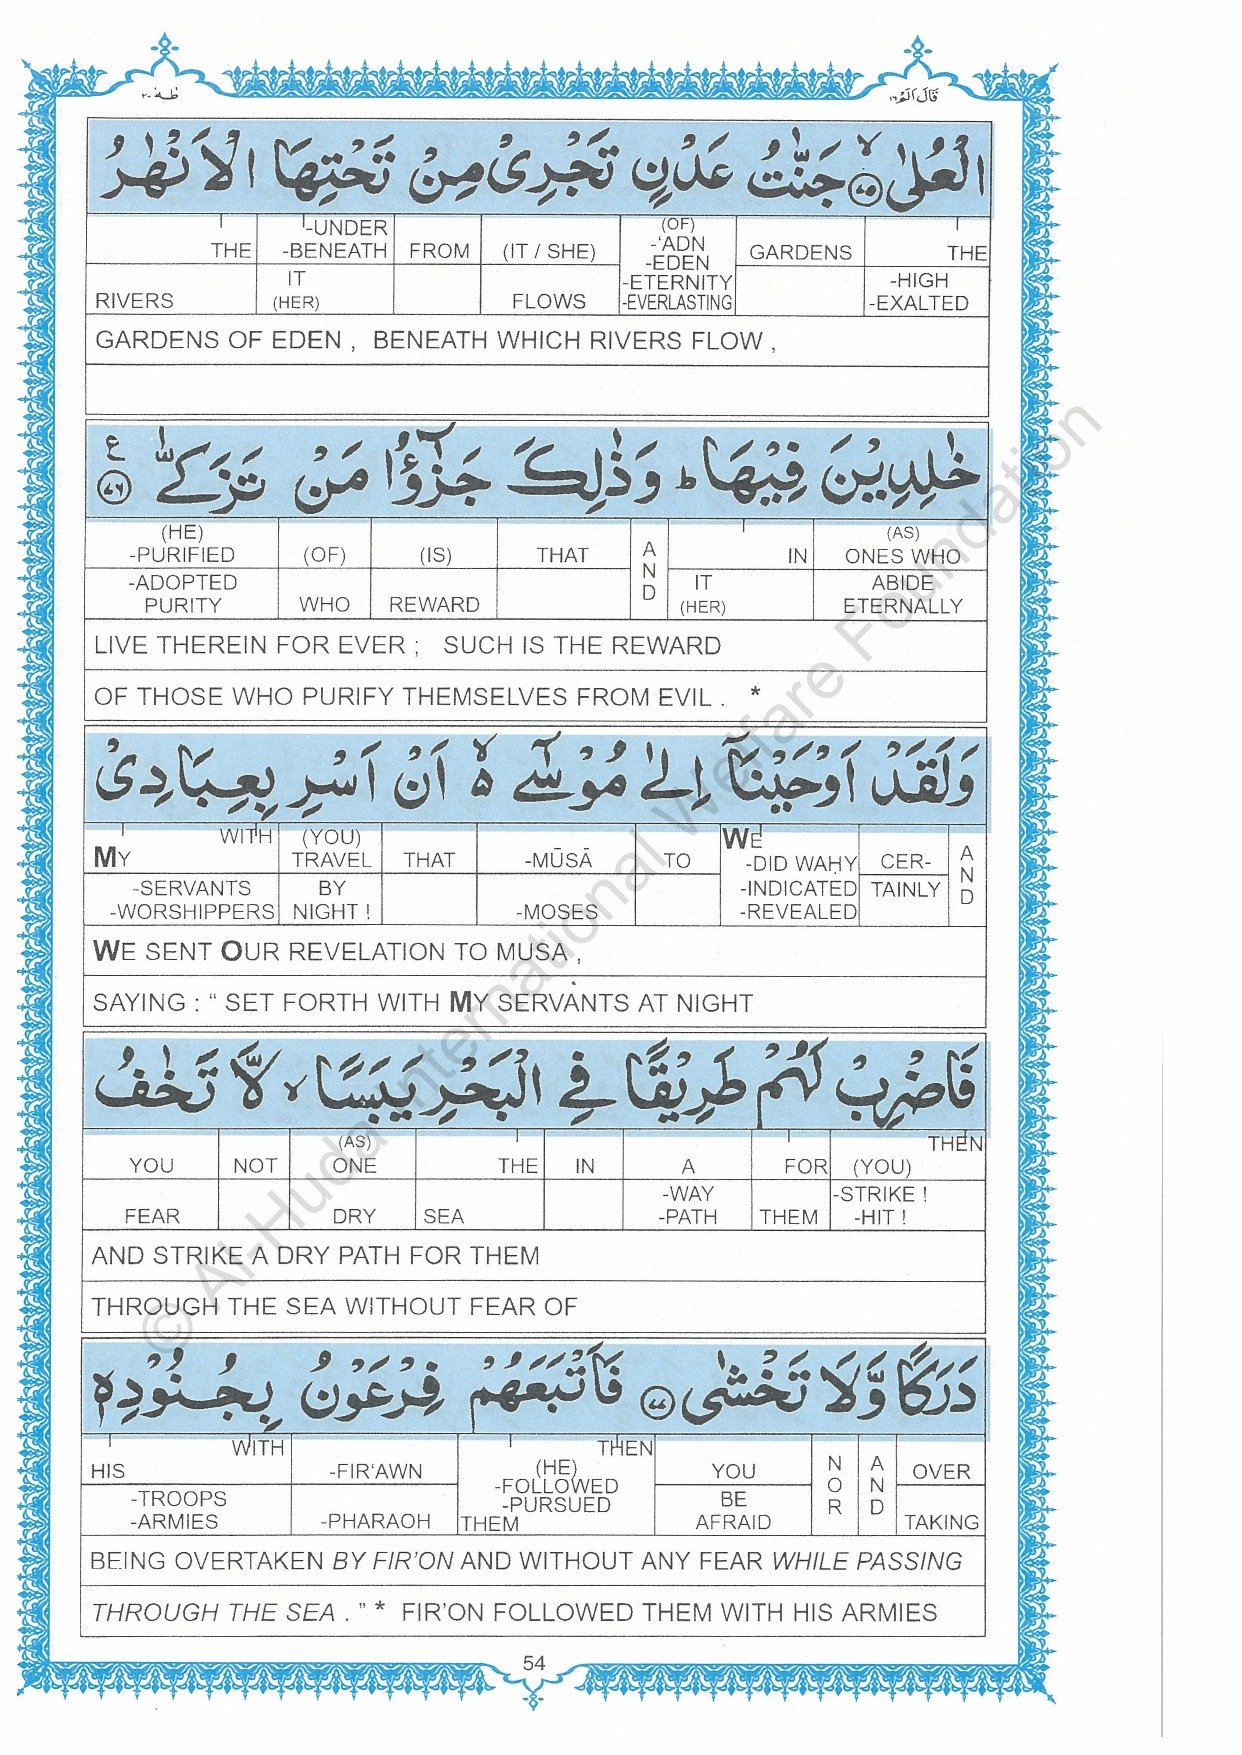 طٰهٰ ٢٠
قَالَ اَلَمْ ١٦
الْعُلٰى ۙ﴿٧٥﴾ جَنّٰتُ عَدْنٍ تَجْرِیْ مِنْ تَحْتِهَا الْاَنْهٰرُ
THE RIVERS | -UNDER -BENEATH IT (HER) | FROM | (IT / SHE) FLOWS | (OF) -‘ADN -EDEN -ETERNITY -EVERLASTING | GARDENS | THE -HIGH -EXALTED
GARDENS OF EDEN , BENEATH WHICH RIVERS FLOW ,
خٰلِدِیْنَ فِیْهَا ؕ وَذٰلِكَ جَزٰٓؤُا مَنْ تَزَكّٰى ﴿٧٦﴾ ع
(HE) -PURIFIED -ADOPTED PURITY | (OF) WHO | (IS) REWARD | THAT | AND | IN IT (HER) | (AS) ONES WHO ABIDE ETERNALLY
LIVE THEREIN FOR EVER ; SUCH IS THE REWARD
OF THOSE WHO PURIFY THEMSELVES FROM EVIL . *
وَلَقَدْ اَوْحَیْنَاۤ اِلٰى مُوْسٰۤى ۙ۬ اَنْ اَسْرِ بِعِبَادِیْ
WITH MY -SERVANTS -WORSHIPPERS | (YOU) TRAVEL BY NIGHT ! | THAT | -MŪSĀ -MOSES | TO | WE -DID WAḤY -INDICATED -REVEALED | CER- TAINLY | AND
WE SENT OUR REVELATION TO MUSA ,
SAYING : “ SET FORTH WITH MY SERVANTS AT NIGHT
فَاضْرِبْ لَهُمْ طَرِیْقًا فِی الْبَحْرِ یَبَسًا ۙ لَّا تَخٰفُ
YOU FEAR | NOT | (AS) ONE DRY | THE SEA | IN | A -WAY -PATH | FOR THEM | THEN (YOU) -STRIKE ! -HIT !
AND STRIKE A DRY PATH FOR THEM
THROUGH THE SEA WITHOUT FEAR OF
دَرَكًا وَّلَا تَخْشٰى ﴿٧٧﴾ فَاَتْبَعَهُمْ فِرْعَوْنُ بِجُنُوْدِهٖ
WITH HIS -TROOPS -ARMIES | -FIR‘AWN -PHARAOH | THEN (HE) -FOLLOWED -PURSUED THEM | YOU BE AFRAID | NOR | AND | OVER TAKING
BEING OVERTAKEN BY FIR’ON AND WITHOUT ANY FEAR WHILE PASSING
THROUGH THE SEA . ” * FIR’ON FOLLOWED THEM WITH HIS ARMIES
54
© Al-Huda International Welfare Foundation